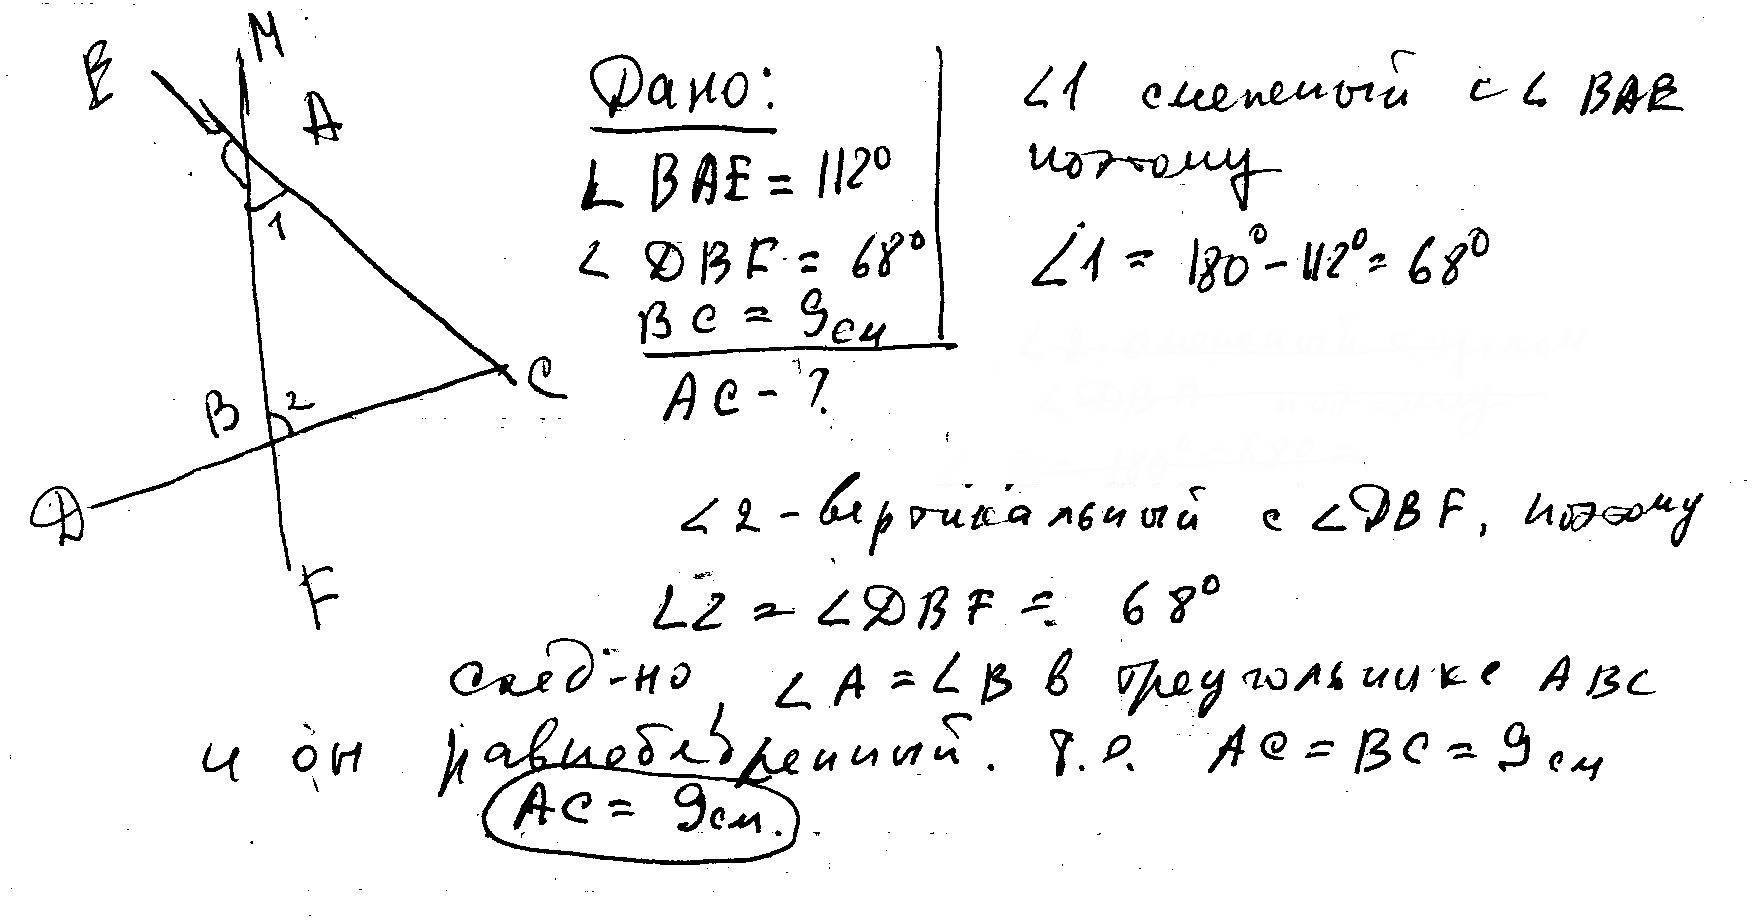 E
M
A
1
B
2
C
D
F
Дано:
∠ BAE = 112°
∠ DBF = 68°
BC = 9 см
AC - ?
∠1 смежный с ∠ BAE
поэтому
∠1 = 180° - 112° = 68°
∠2 - вертикальный с ∠DBF, поэтому
∠2 = ∠DBF = 68°
след-но, ∠A = ∠B в треугольнике ABC
и он равнобедренный. т.е. AC = BC = 9 см
AC = 9 см.